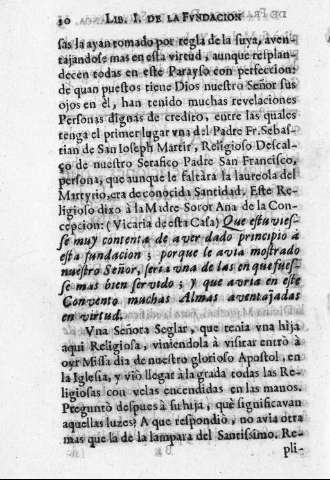 30 LIB. I. DE LA FVNDACION
sas la ayan tomado por regla de la suya, aven-
tajandose mas en esta virtud, aunque resplan-
decen todas en este Parayso con perfeccion:
de quan puestos tiene Dios nuestro Señor sus
ojos en èl, han tenido muchas revelaciones
Personas dignas de credito, entre las quales
tenga el primer lugar vna del Padre Fr. Sebas-
tian de San Ioseph Martir, Religioso Descal-
ço de nuestro Serafico Padre San Francisco,
persona, que aunque le faltàra la laureola del
Martyrio, era de conocida Santidad. Este Re-
ligioso dixo à la Madre Soror Ana de la Con-
cepcion: (Vicaria de esta Casa) Que estuvies-
se muy contenta de aver dado principio à
esta fundacion; porque le avia mostrado
nuestro Señor, seria vna de las en que fues-
se mas bien servido; y que avria en este
Convento muchas Almas aventajadas
en virtud.
Vna Señora Seglar, que tenia vna hija
aqui Religiosa, viniendola à visitar entrò à
oyr Missa dia de nuestro glorioso Apostol, en
la Iglesia, y viò llegar à la grada todas las Re-
ligiosas con velas encendidas en las manos.
Preguntò despues à su hija, què significavan
aquellas luzes? A que respondiò, no avia otra
mas que la de la lampara del Santissimo. Re-
pli-